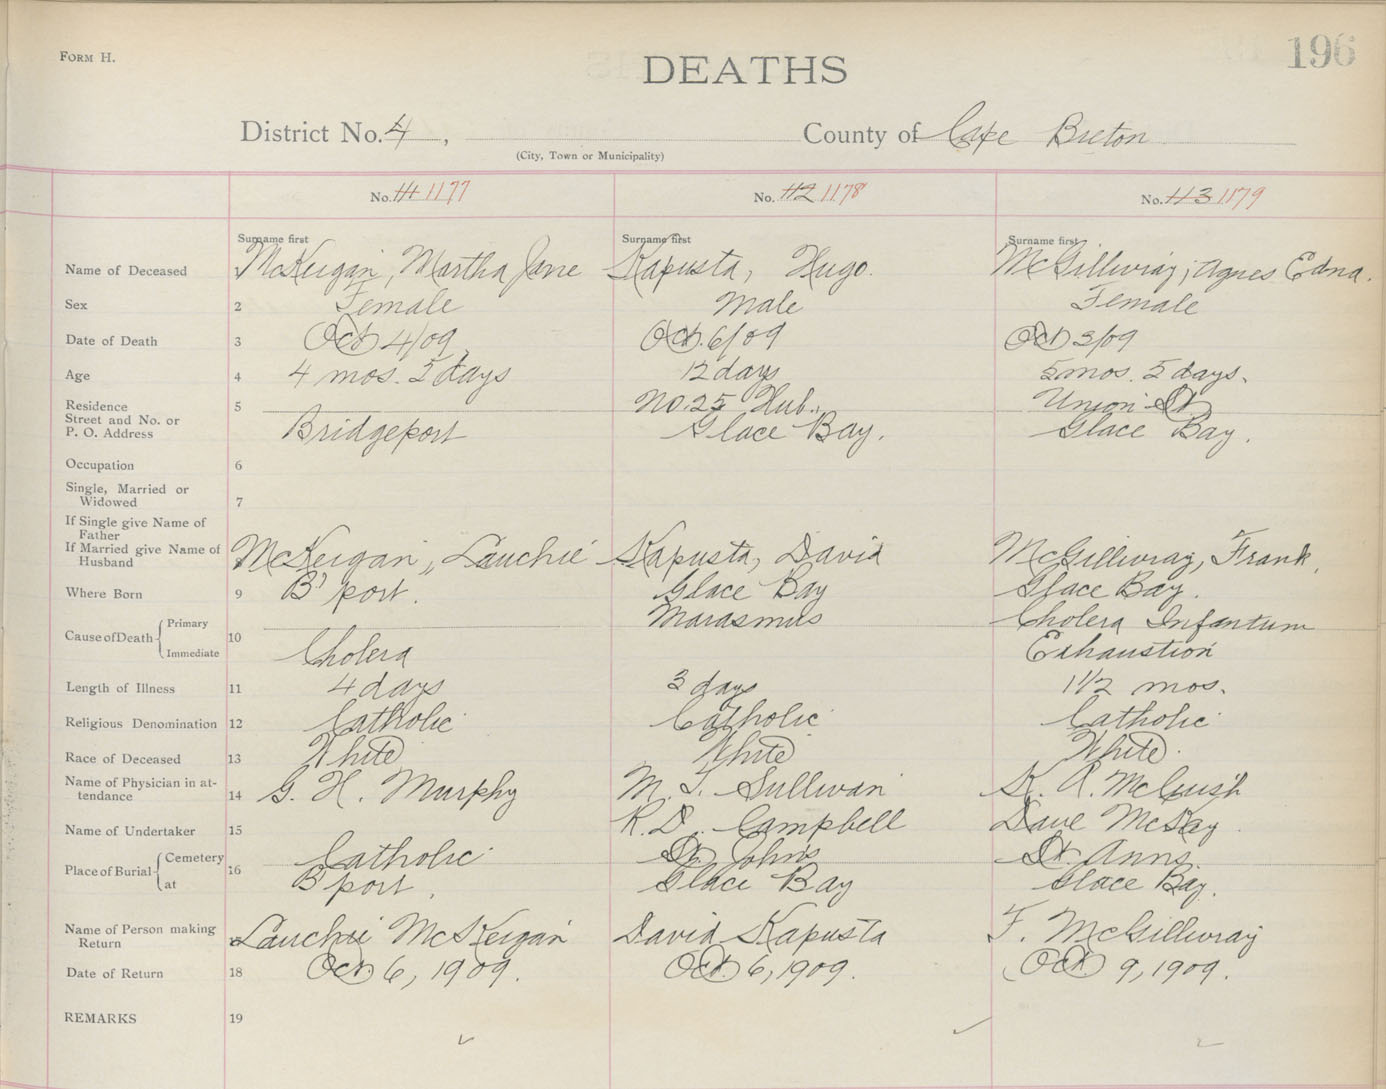 FORM H.
196
DEATHS
District No. 4, County of Cape Breton
(City, Town or Municipality)
No. 111 1177 No. 112 1178 No. 113 1179
Surname first Surname first Surname first
Name of Deceased McKeigan, Martha Jane Kapusta, Hugo. McGillivray, Agnes Edna.
Sex 2 Female Male Female
Date of Death 3 Oct 4/09 Oct. 6/09 Oct 3/09
Age 4 4 mos. 5 days 12 days 5 mos. 5 days.
Residence 5 No. 25 Hub., Union St
Street and No. or
P. O. Address Bridgeport Glace Bay. Glace Bay.
Occupation 6
Single, Married or
Widowed 7
If Single give Name of
Father
If Married give Name of
Husband 8 McKeigan, Lauchie Kapusta, David McGillivray, Frank.
Where Born 9 B'port. Glace Bay Glace Bay.
Cause of Death Primary 10 Marasmus Cholera Infantum
Immediate Cholera Exhaustion
Length of Illness 11 4 days 3 days 1 1/2 mos.
Religious Denomination 12 Catholic Catholic Catholic
Race of Deceased 13 White White White.
Name of Physician in at-
tendance 14 G. H. Murphy M. T. Sullivan K. A. McCuish
Name of Undertaker 15 R. D. Campbell Dave McKay
Place of Burial Cemetery 16 Catholic St. Johns St. Anns.
at B'port. Glace Bay Glace Bay.
Name of Person making
Return Lauchie McKeigan David Kapusta F. McGillivray
Date of Return 18 Oct 6, 1909. Oct. 6, 1909. Oct. 9, 1909.
REMARKS 19